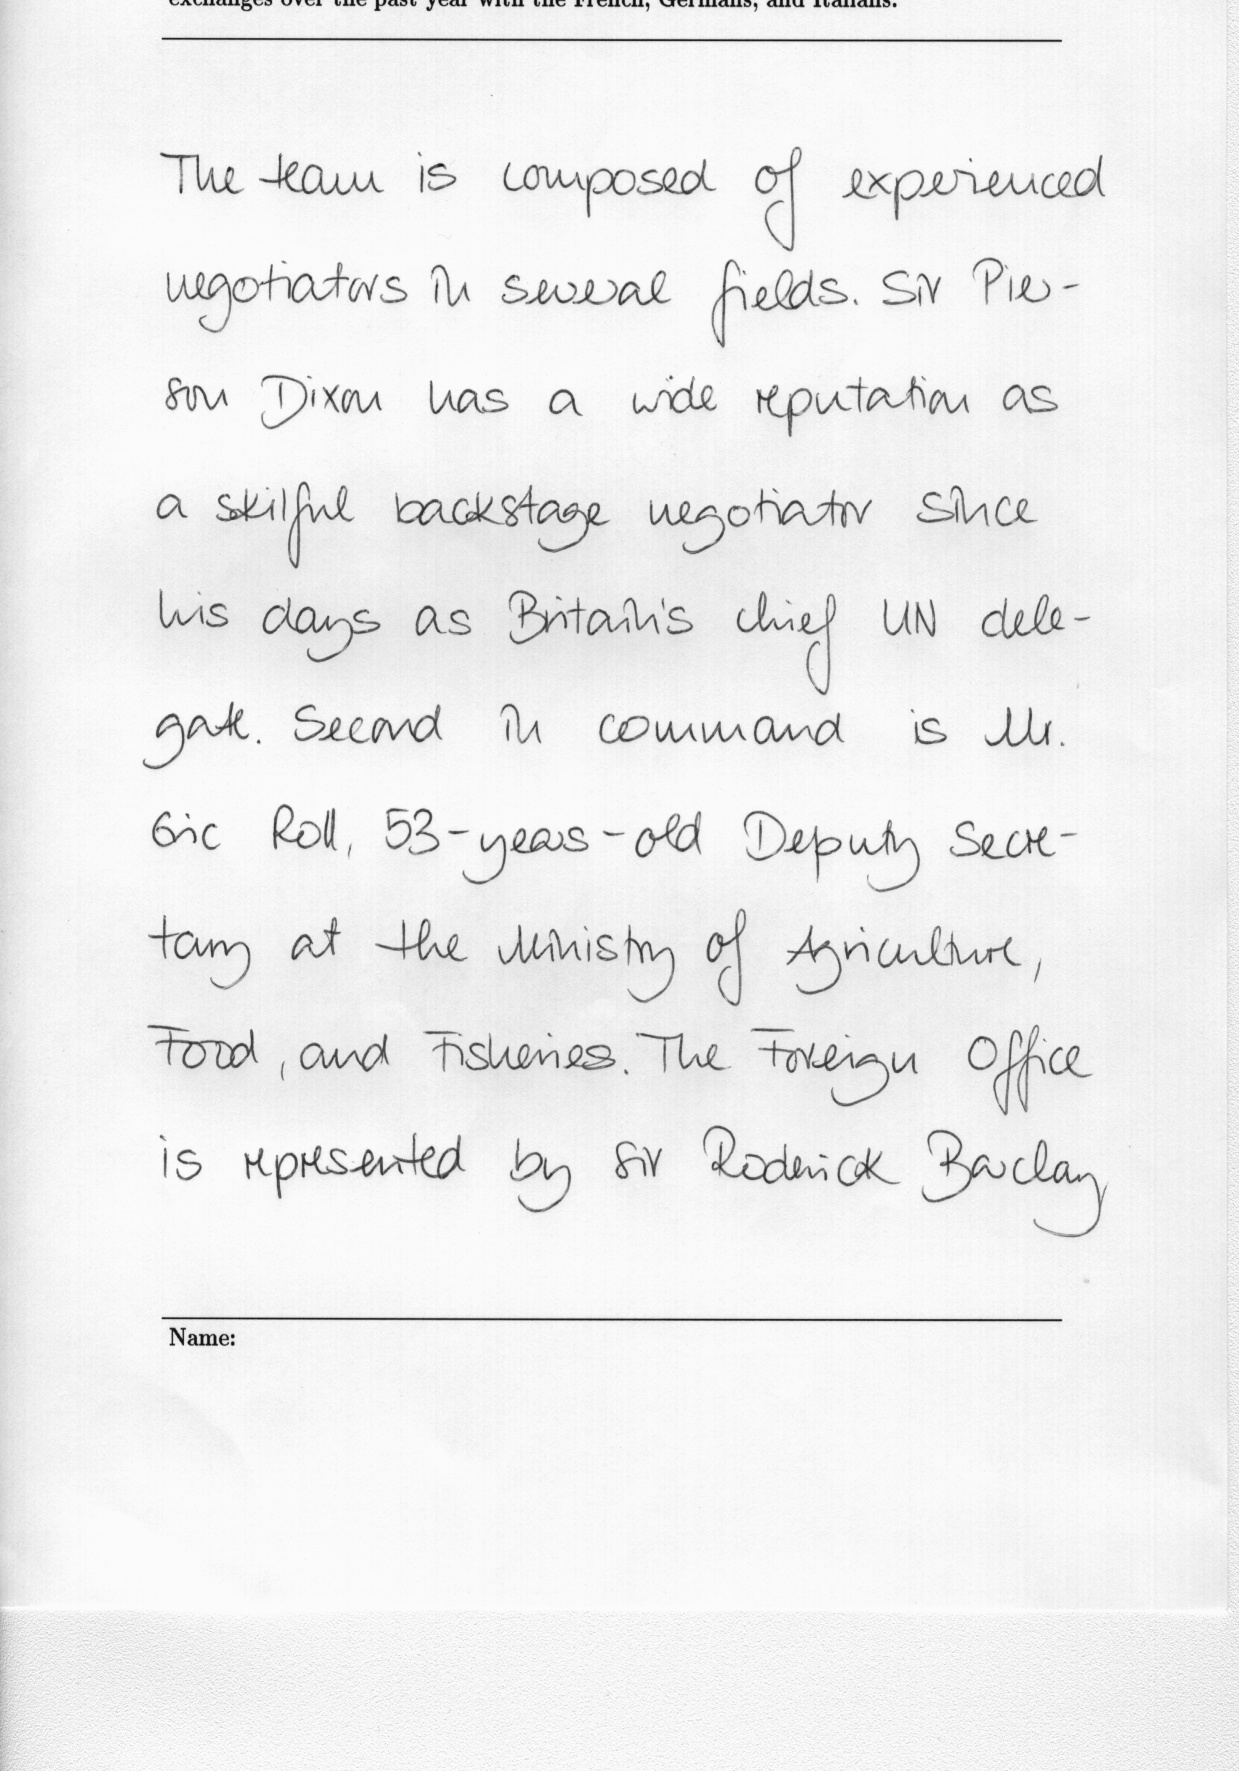 exchanges over the past year with the French, Germans, and Italians.
The team is composed of experienced
negotiators in several fields. Sir Pier-
son Dixon has a wide reputation as
a skilful backstage negotiator since
his days as Britain's chief UN dele-
gate. Second in command is Mr.
Eric Roll, 53-years-old Deputy Secre-
tary at the Ministry of Agriculture,
Food, and Fisheries. The Foreign Office
is represented by Sir Roderick Barclay
Name: